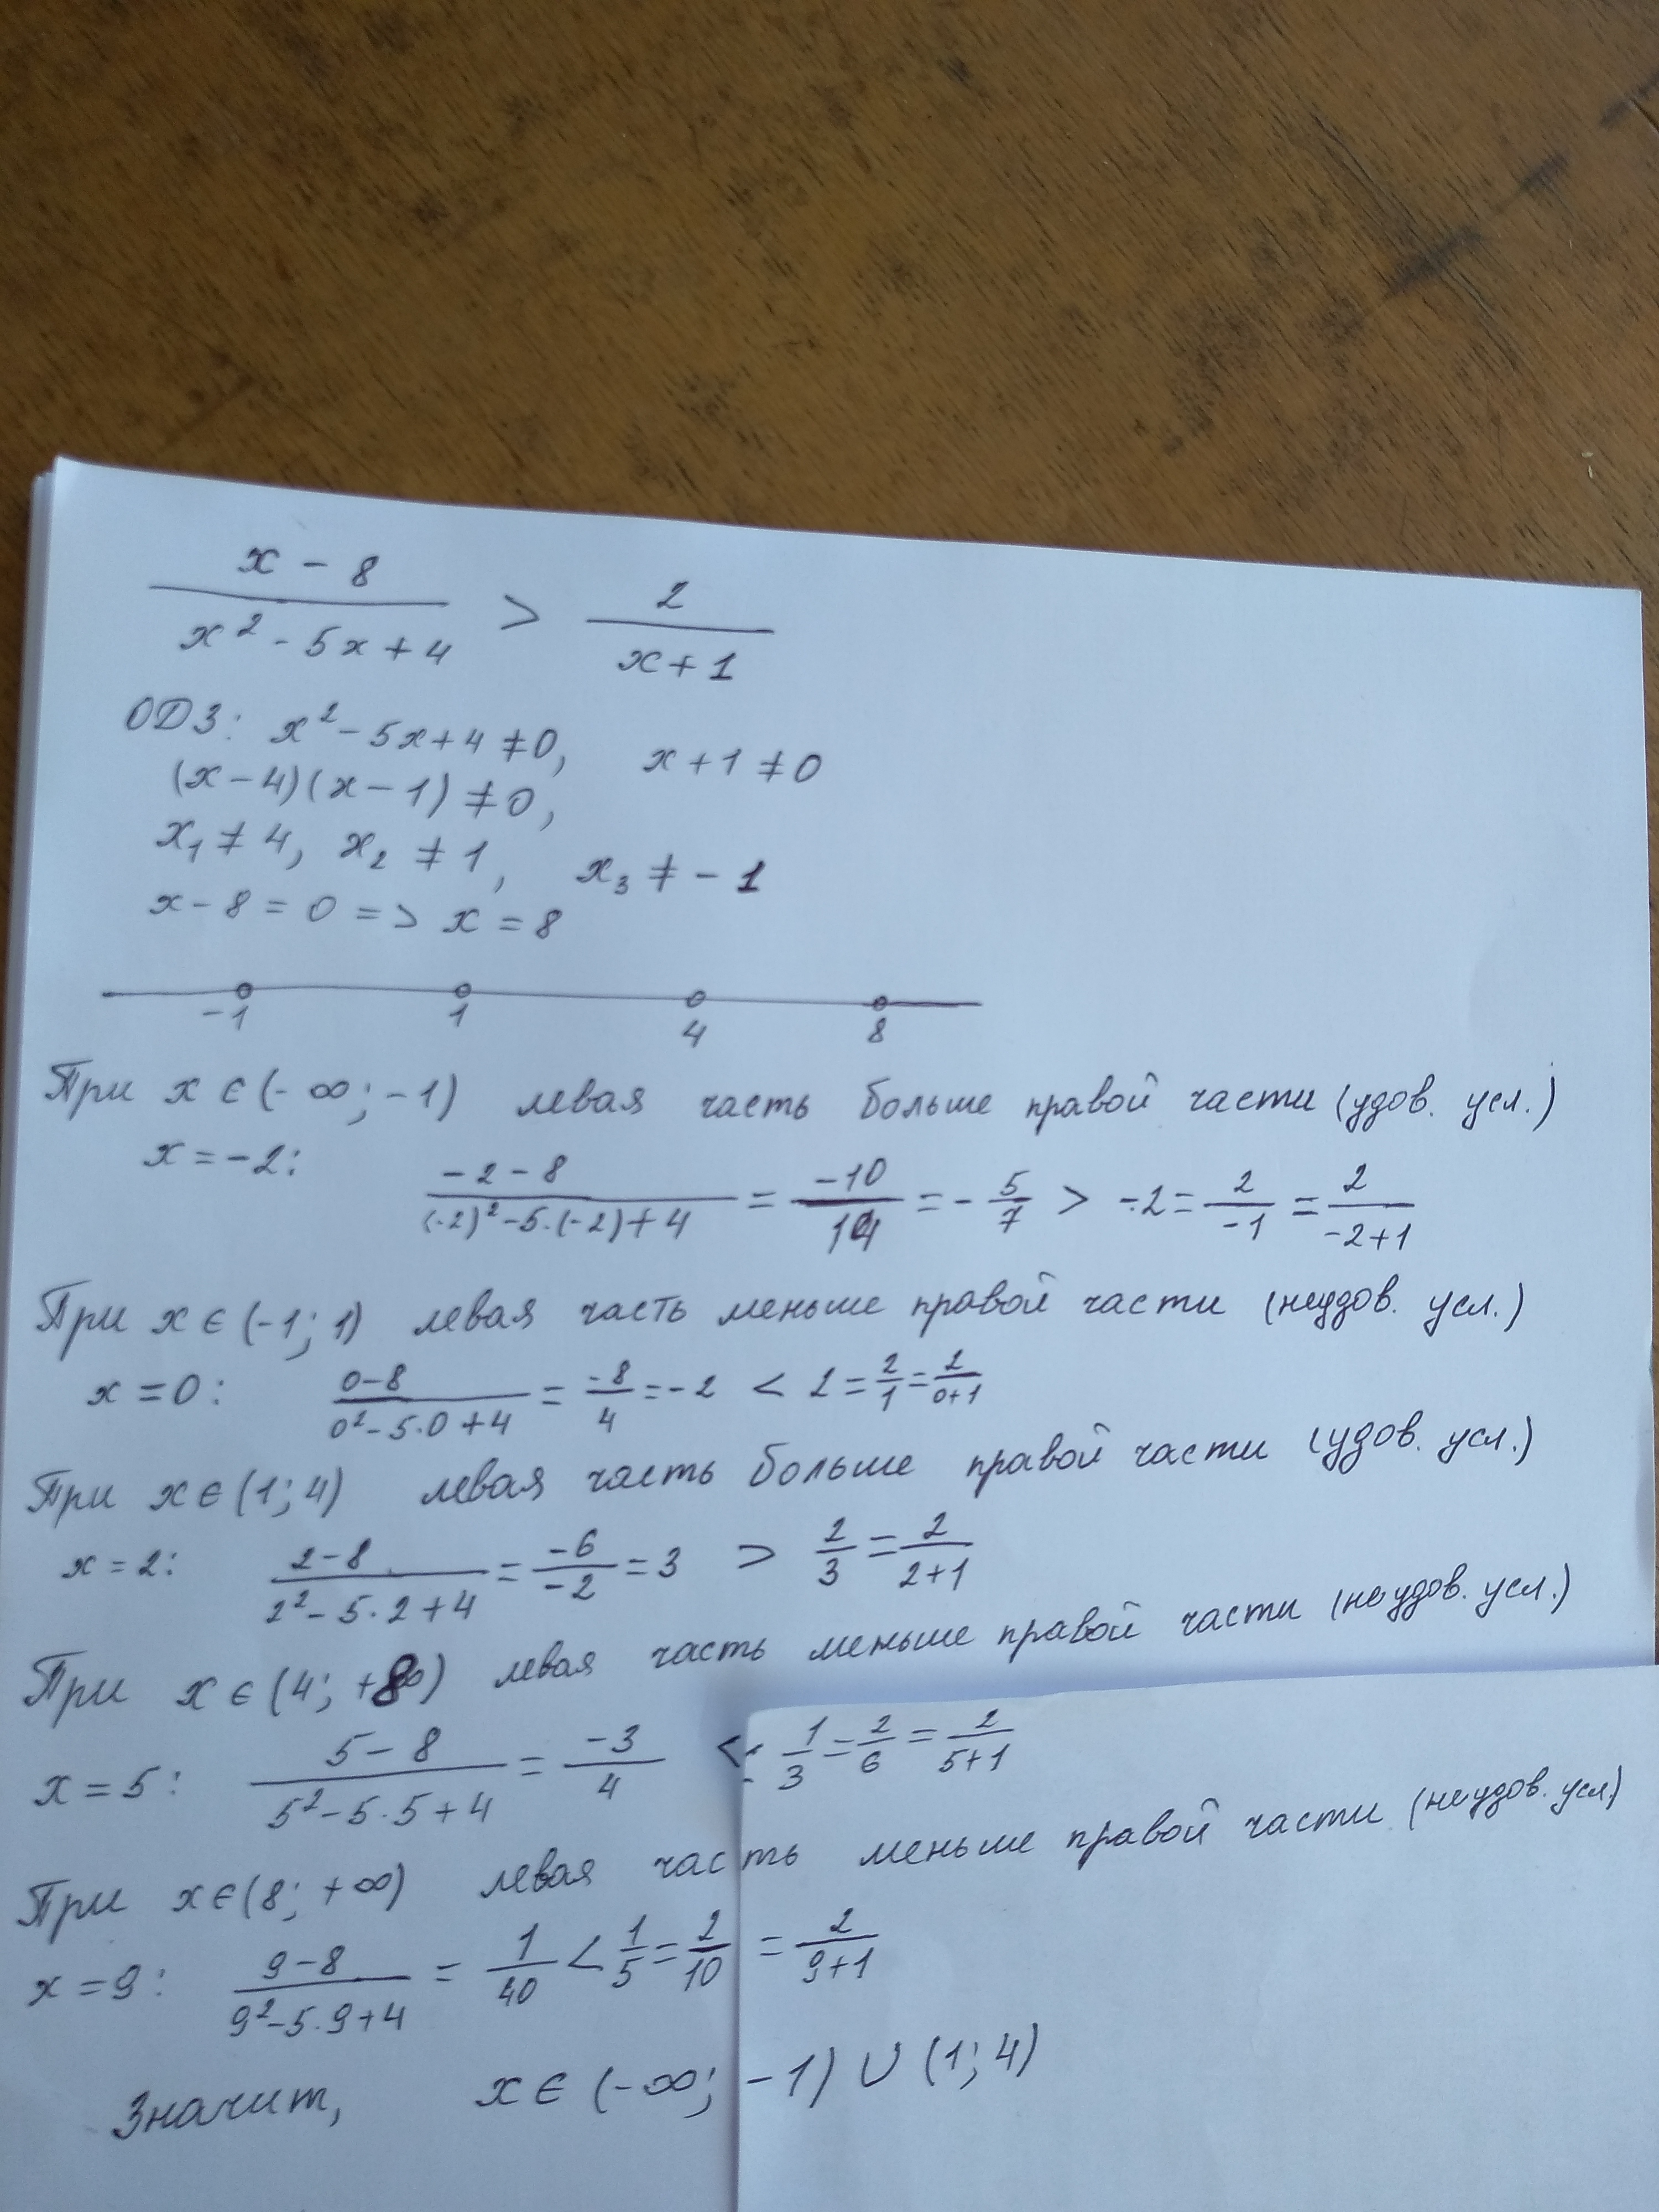 x - 8 / x² - 5x + 4 > 2 / x + 1
ОДЗ: x² - 5x + 4 ≠ 0, x + 1 ≠ 0
(x - 4)(x - 1) ≠ 0,
x₁ ≠ 4, x₂ ≠ 1, x₃ ≠ - 1
x - 8 = 0 => x = 8
-1 1 4 8
При x ∈ (- ∞; -1) левая часть больше правой части (удов. усл.)
x = -2: -2 - 8 / (-2)² - 5·(-2) + 4 = -10 / 14 = - 5/7 > -2 = 2 / -1 = 2 / -2+1
При x ∈ (-1; 1) левая часть меньше правой части (неудов. усл.)
x = 0: 0-8 / 0² - 5·0 + 4 = -8 / 4 = -2 < 2 = 2/1 = 2 / 0+1
При x ∈ (1; 4) левая часть больше правой части (удов. усл.)
x = 2: 2-8 / 2² - 5·2 + 4 = -6 / -2 = 3 > 2/3 = 2 / 2+1
При x ∈ (4; +8) левая часть меньше правой части (неудов. усл.)
x = 5: 5-8 / 5² - 5·5 + 4 = -3 / 4 < 1/3 = 2/6 = 2 / 5+1
При x ∈ (8; +∞) левая часть меньше правой части (неудов. усл.)
x = 9: 9-8 / 9² - 5·9 + 4 = 1/40 < 1/5 = 2/10 = 2 / 9+1
Значит, x ∈ (-∞; -1) ∪ (1; 4)